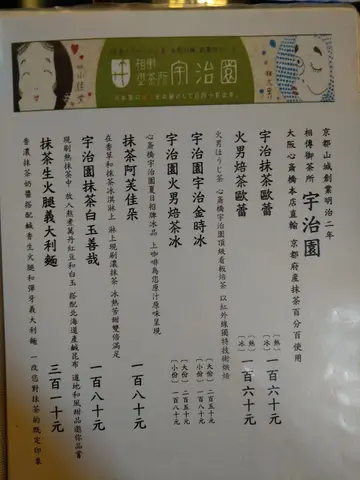 相傳
御茶所
宇治園
京都山城創業明治二年
相傳御茶所 宇治園
大阪心斎橋本店直輸 京都府産抹茶百分百使用
宇治抹茶歐蕾 〔熱〕〔冰〕 一百六十元
火男焙茶歐蕾 〔熱〕〔冰〕 一百六十元
火男ほうじ茶 心斎橋宇治園頂級看板焙茶 以紅外線獨特技術烘焙
宇治園宇治金時冰 〔大份〕二百五十元 〔小份〕一百八十元
宇治園火男焙茶冰 〔大份〕二百五十元 〔小份〕一百八十元
心斎橋宇治園夏日招牌冰品 上の咖為您原汁原味呈現
抹茶阿芙佳朵 一百八十元
在香草和抹茶冰淇淋上 淋上現刷濃抹茶 冰熱苦甜雙倍滿足
宇治園抹茶白玉善哉 一百八十元
現刷熱抹茶中 放入熬煮萬丹紅豆和白玉 搭配北海道產鹹昆布 道地和風甜品邀你品嘗
抹茶生火腿義大利麵 三百一十元
香濃抹茶奶醬搭配鹹香生火腿和彈牙義大利麵 一改您對抹茶的既定印象